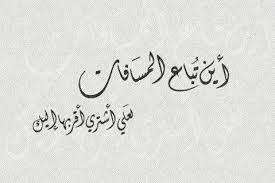 أين تُباع المسافات
لعلي أشتري أقربها إليك